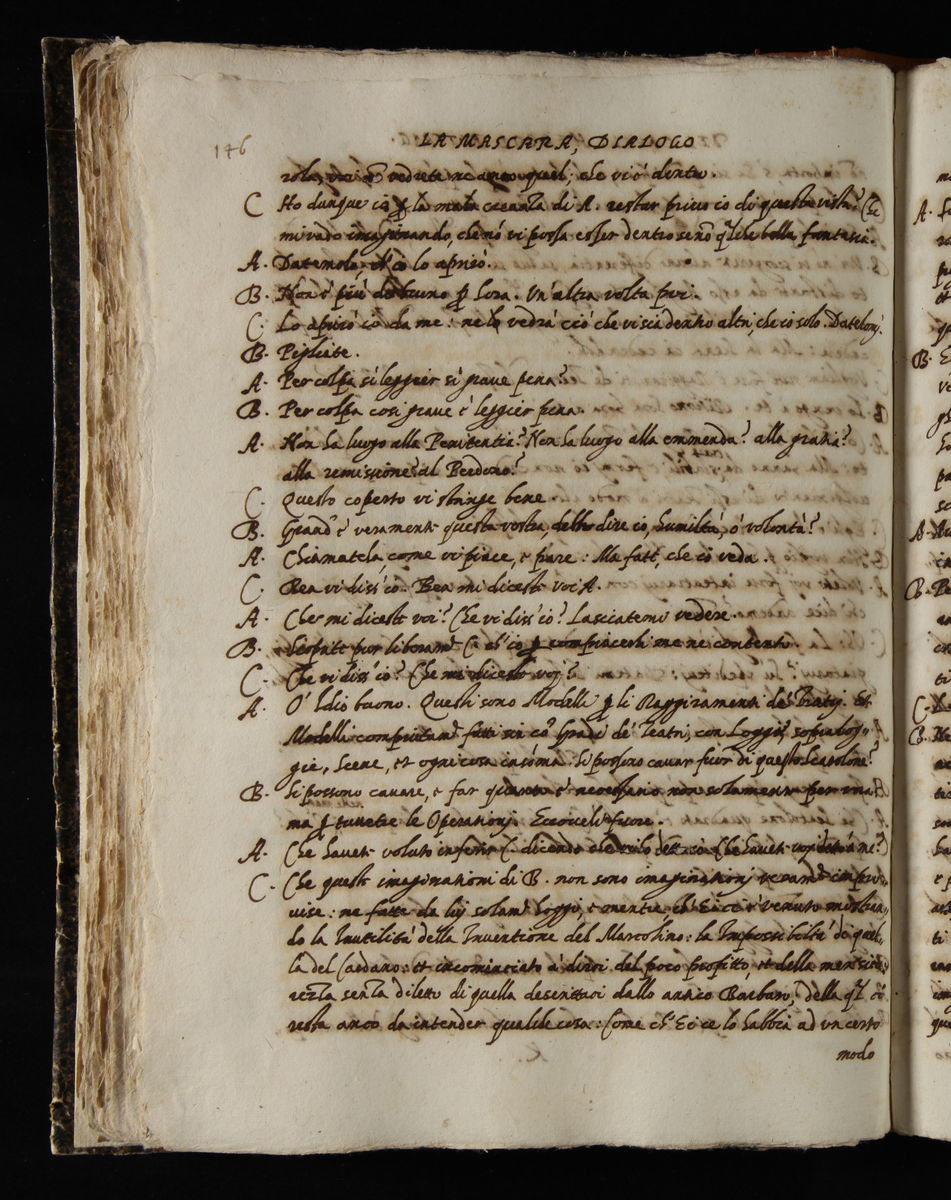 146
LA MASCARA, DIALOGO
rola, voi nō vedrete ne anco quel, che vi è dentro.
C. Ho dunque io ꝑ la mala creanza di A. restar privo io di questa vista? Che
mi vado imaginando, che nō vi possa esser dentro senō qlche bella fantasia.
A. Datemolo, ch'io lo aprirò.
B. Non è più di buono ꝑ hora. Un'altra volta poi.
C. Lo aprirò io da me: ne lo vedrà ciò che vi sia dentro altri, che io solo. Datelomi.
B. Pigliate.
A. Per colpa sì leggier sì grave pena?
B. Per colpa così grave è leggier pena.
A. Non ha luogo alla Penitentia? Non ha luogo alla emmenda? alla gratia?
alla remissione? al Perdono?
C. Questo coperto vi stringe bene.
B. Grand' è veramente questa vostra, debbo dire io, humiltà, o volontà?
A. Chiamatela, come vi piace, e pare: Ma fate, che io veda.
C. Ben vi diss'io. Ben mi diceste voi A.
A. Che mi diceste voi? Che vi diss'io? Lasciatemi vedere.
B. Scoprite pur liberamte C. ch'io ꝑ compiacerli me ne contento.
C. Che vi diss'io? Che mi diceste voi?
A. O' Idio buono. Questi sono Modelli ꝑ li Raggiramenti de' Teatri. Et
Modelli compiutamte fatti si cō Gradi de' Teatri, con Loggie, sopralog-
gie, Scene, et ogni cosa insōma. Si possono cavar fuor di questo Scatolone?
B. Si possono cavare, e far quanto è necessario non solamente per una
ma ꝑ tuttetre le Operationi. Eccoveli fuore.
A. Che havete voluto inferir C. dicendo che
C. Che queste imaginationi di B. non sono imaginationi veramte impro-
vise: ne fatte da lui solamte hoggi, e mentre ch'Ei ce è venuto mostran-
do la Inutilità della Inventione del Marcolino: la Impossibiltà di quel-
la del Cardano: et incominciato à dirci del poco profitto, et della
senza diletto di quella descrittaci dallo antico Barbaro, della ql ci
resta anco da intender qualche cosa: Come ch'Ei ce lo habbia ad un certo
modo